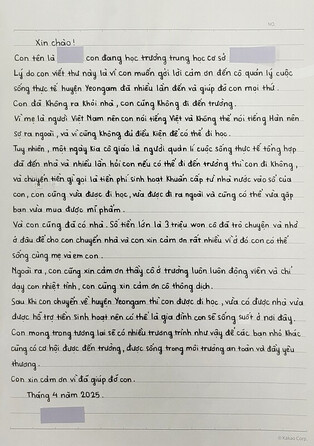 Xin chào!
Con tên là con đang học trường trung học cơ sở
Lý do con viết thư này là vì con muốn gởi lời cảm ơn đến cô quản lý cuộc
sống thực tế huyện Yeongam đã nhiều lần đến và giúp đỡ con mọi thứ.
Con đã Không ra Khỏi nhà, con cũng Không đi đến trường.
Vì mẹ là người Việt Nam nên con nói tiếng Việt và Không thể nói tiếng Hàn nên
sợ ra ngoài, và vì cũng Không đủ điều Kiện để có thể đi học.
Tuy nhiên, một ngày Kia cô giáo là người quản lí cuộc sống thực tế tổng hợp
đã đến nhà và nhiều lần hỏi con nếu có thể đi đến trường thì con đi Không,
và chuyển tiền gì gọi là tiền phí sinh hoạt Khuẩn cấp từ nhà nước vào số của
con, con cũng vừa được đi học, vừa được đi ra ngoài và cũng có thể vừa gặp
bạn vừa mua được mĩ phẩm.
Và con cũng đã có nhà. Số tiền lớn là 3 triệu won cô đã trò chuyện và nhờ
ở đâu để cho con chuyển nhà và con xin cảm ơn rất nhiều vì ở đó con có thể
sống cùng mẹ và em con.
Ngoài ra, con cũng xin cảm ơn thầy cô ở trường luôn luôn động viên và chỉ
dạy con nhiệt tình, con cũng xin cảm ơn cô thông dịch.
Sau Khi con chuyển về huyện Yeongam thì con được đi học, vừa có được nhà vừa
được hỗ trợ tiền sinh hoạt nên có thể là gia đình con sẽ sống suốt ở nơi đây.
Con mong trong tương lai sẽ có nhiều trương trình như vậy để các bạn nhỏ Khác
cũng có cơ hội được đến trường, được sống trong môi trường an toàn và đầy yêu
thương.
Con xin cảm ơn vì đã giúp đỡ con.
Tháng 4 năm 2025.
© Kakao Corp.